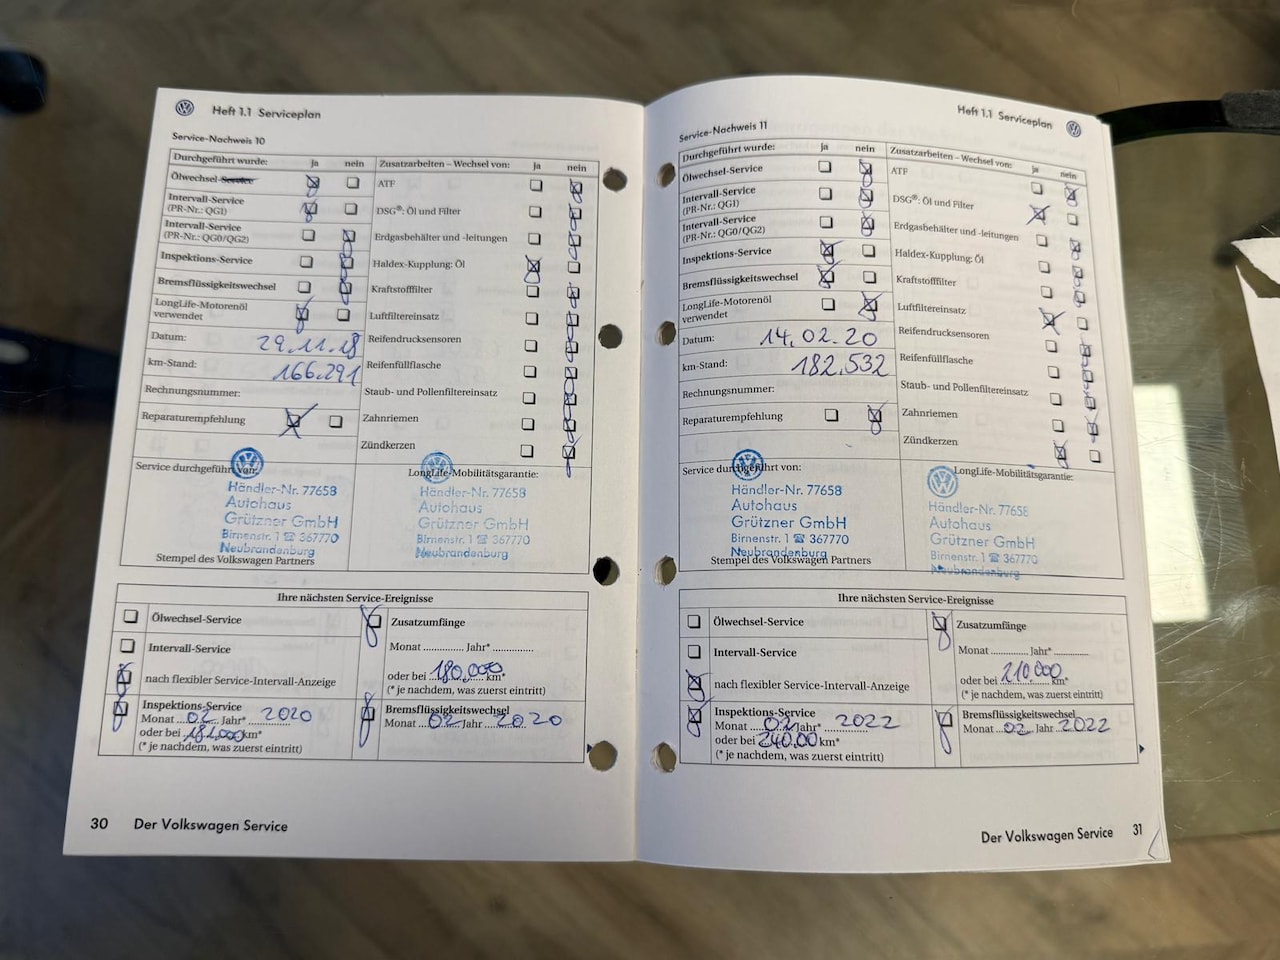 Heft 1.1 Serviceplan
Service-Nachweis 10
Durchgeführt wurde: ja nein
Ölwechsel-Service
Intervall-Service
(PR-Nr.: QG1)
Intervall-Service
(PR-Nr.: QG0/QG2)
Inspektions-Service
Bremsflüssigkeitswechsel
LongLife-Motorenöl
verwendet
Datum: 29.11.18
km-Stand: 166.291
Rechnungsnummer:
Reparaturempfehlung
Zusatzarbeiten – Wechsel von: ja nein
ATF
DSG®: Öl und Filter
Erdgasbehälter und -leitungen
Haldex-Kupplung: Öl
Kraftstofffilter
Luftfiltereinsatz
Reifendrucksensoren
Reifenfüllflasche
Staub- und Pollenfiltereinsatz
Zahnriemen
Zündkerzen
Service durchgeführt von:
Händler-Nr. 77658
Autohaus
Grützner GmbH
Birnenstr. 1 ☎ 367770
Neubrandenburg
Stempel des Volkswagen Partners
LongLife-Mobilitätsgarantie:
Händler-Nr. 77658
Autohaus
Grützner GmbH
Birnenstr. 1 ☎ 367770
Neubrandenburg
Ihre nächsten Service-Ereignisse
Ölwechsel-Service
Intervall-Service
nach flexibler Service-Intervall-Anzeige
Inspektions-Service
Monat 02 Jahr* 2020
oder bei 181.000 km*
(* je nachdem, was zuerst eintritt)
Zusatzumfänge
Monat ............. Jahr* .............
oder bei 180.000 km*
(* je nachdem, was zuerst eintritt)
Bremsflüssigkeitswechsel
Monat 02 Jahr 2020
30 Der Volkswagen Service
Heft 1.1 Serviceplan
Service-Nachweis 11
Durchgeführt wurde: ja nein
Ölwechsel-Service
Intervall-Service
(PR-Nr.: QG1)
Intervall-Service
(PR-Nr.: QG0/QG2)
Inspektions-Service
Bremsflüssigkeitswechsel
LongLife-Motorenöl
verwendet
Datum: 14.02.20
km-Stand: 182.532
Rechnungsnummer:
Reparaturempfehlung
Zusatzarbeiten – Wechsel von: ja nein
ATF
DSG®: Öl und Filter
Erdgasbehälter und -leitungen
Haldex-Kupplung: Öl
Kraftstofffilter
Luftfiltereinsatz
Reifendrucksensoren
Reifenfüllflasche
Staub- und Pollenfiltereinsatz
Zahnriemen
Zündkerzen
Service durchgeführt von:
Händler-Nr. 77658
Autohaus
Grützner GmbH
Birnenstr. 1 ☎ 367770
Neubrandenburg
Stempel des Volkswagen Partners
LongLife-Mobilitätsgarantie:
Händler-Nr. 77658
Autohaus
Grützner GmbH
Birnenstr. 1 ☎ 367770
Neubrandenburg
Ihre nächsten Service-Ereignisse
Ölwechsel-Service
Intervall-Service
nach flexibler Service-Intervall-Anzeige
Inspektions-Service
Monat 02 Jahr* 2022
oder bei 240.00 km*
(* je nachdem, was zuerst eintritt)
Zusatzumfänge
Monat ............. Jahr* .............
oder bei 210.000 km*
(* je nachdem, was zuerst eintritt)
Bremsflüssigkeitswechsel
Monat 02 Jahr 2022
Der Volkswagen Service 31